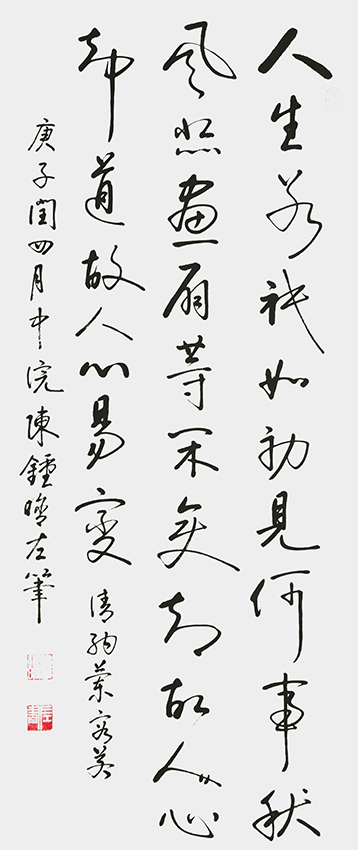 人生若祇如初見何事秋
風悲畫扇等閑変却故人心
却道故人心易變 清納蘭容若
庚子閏四月中浣陳鍾左筆